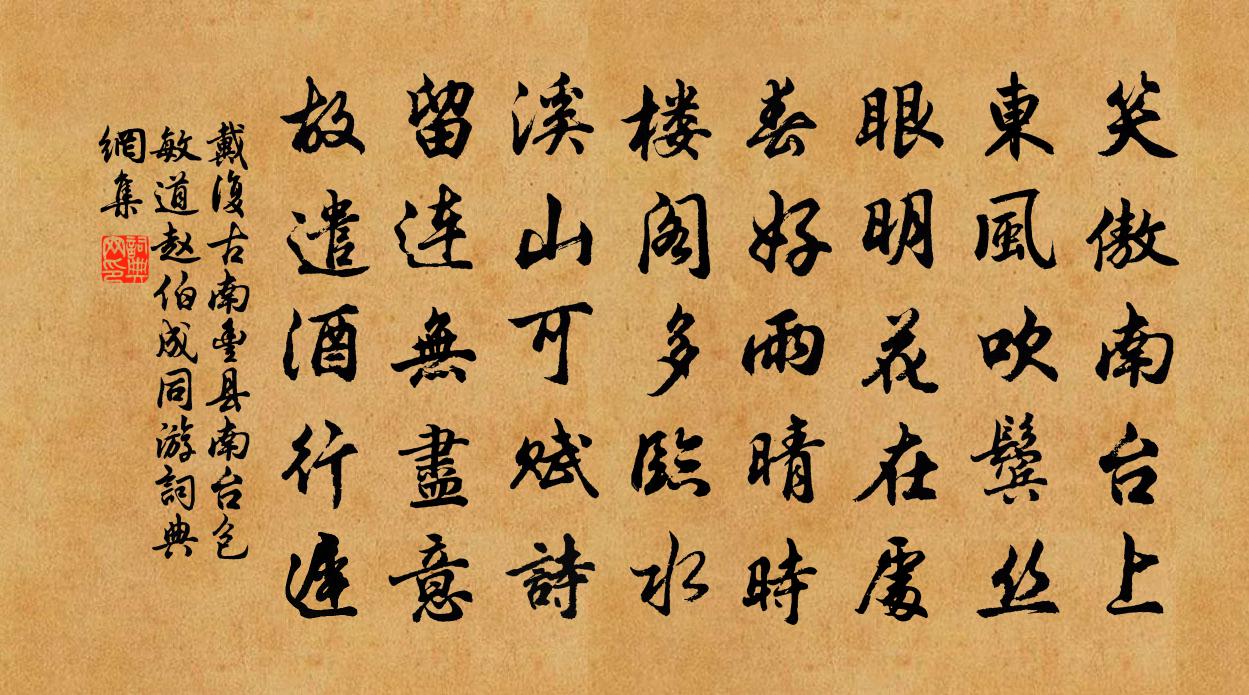 笑傲南台上
東風吹鬓丝
眼明花在處
春好雨晴時
楼阁多臨水
溪山可赋詩
留连無盡意
故遣酒行遲
戴復古南豊县南台包
敏道赵伯成同游詞典
網集
詞典
网印